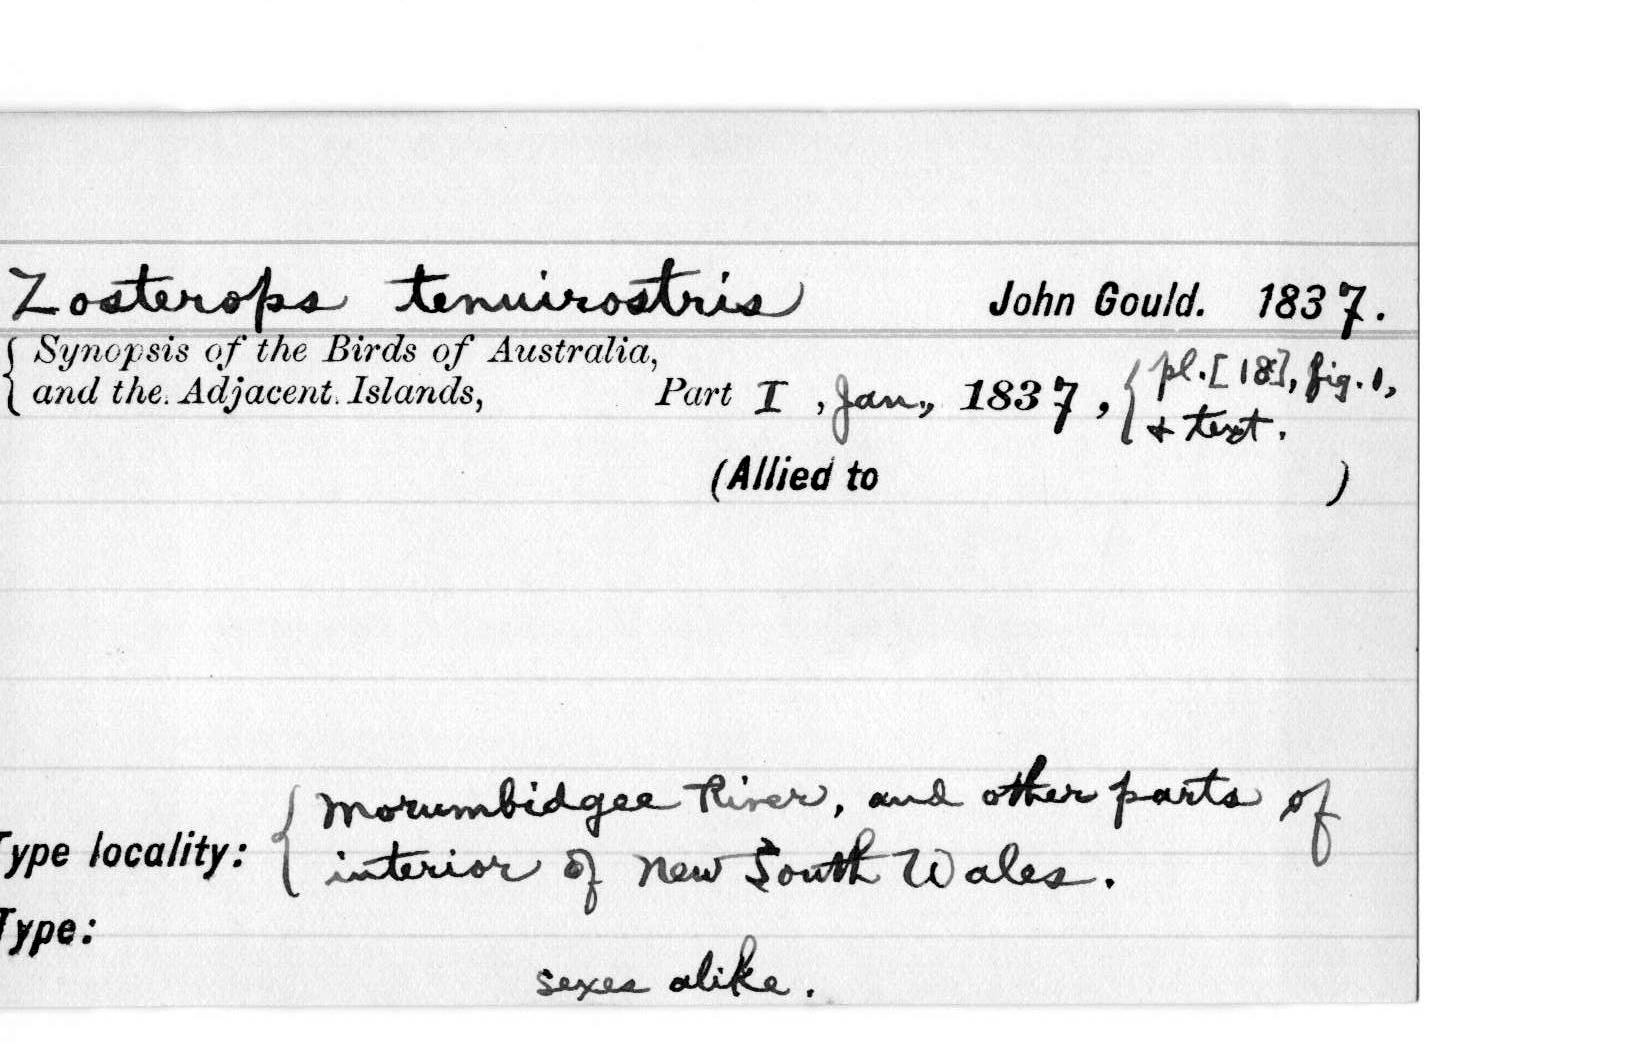 Zosterops tenuirostris John Gould. 1837.
{ Synopsis of the Birds of Australia, and the Adjacent Islands, Part I, Jan., 1837, { pl. [18], fig. 1, & text.
(Allied to )
Type locality: { Morumbidgee River, and other parts of
interior of New South Wales.
Type:
sexes alike.